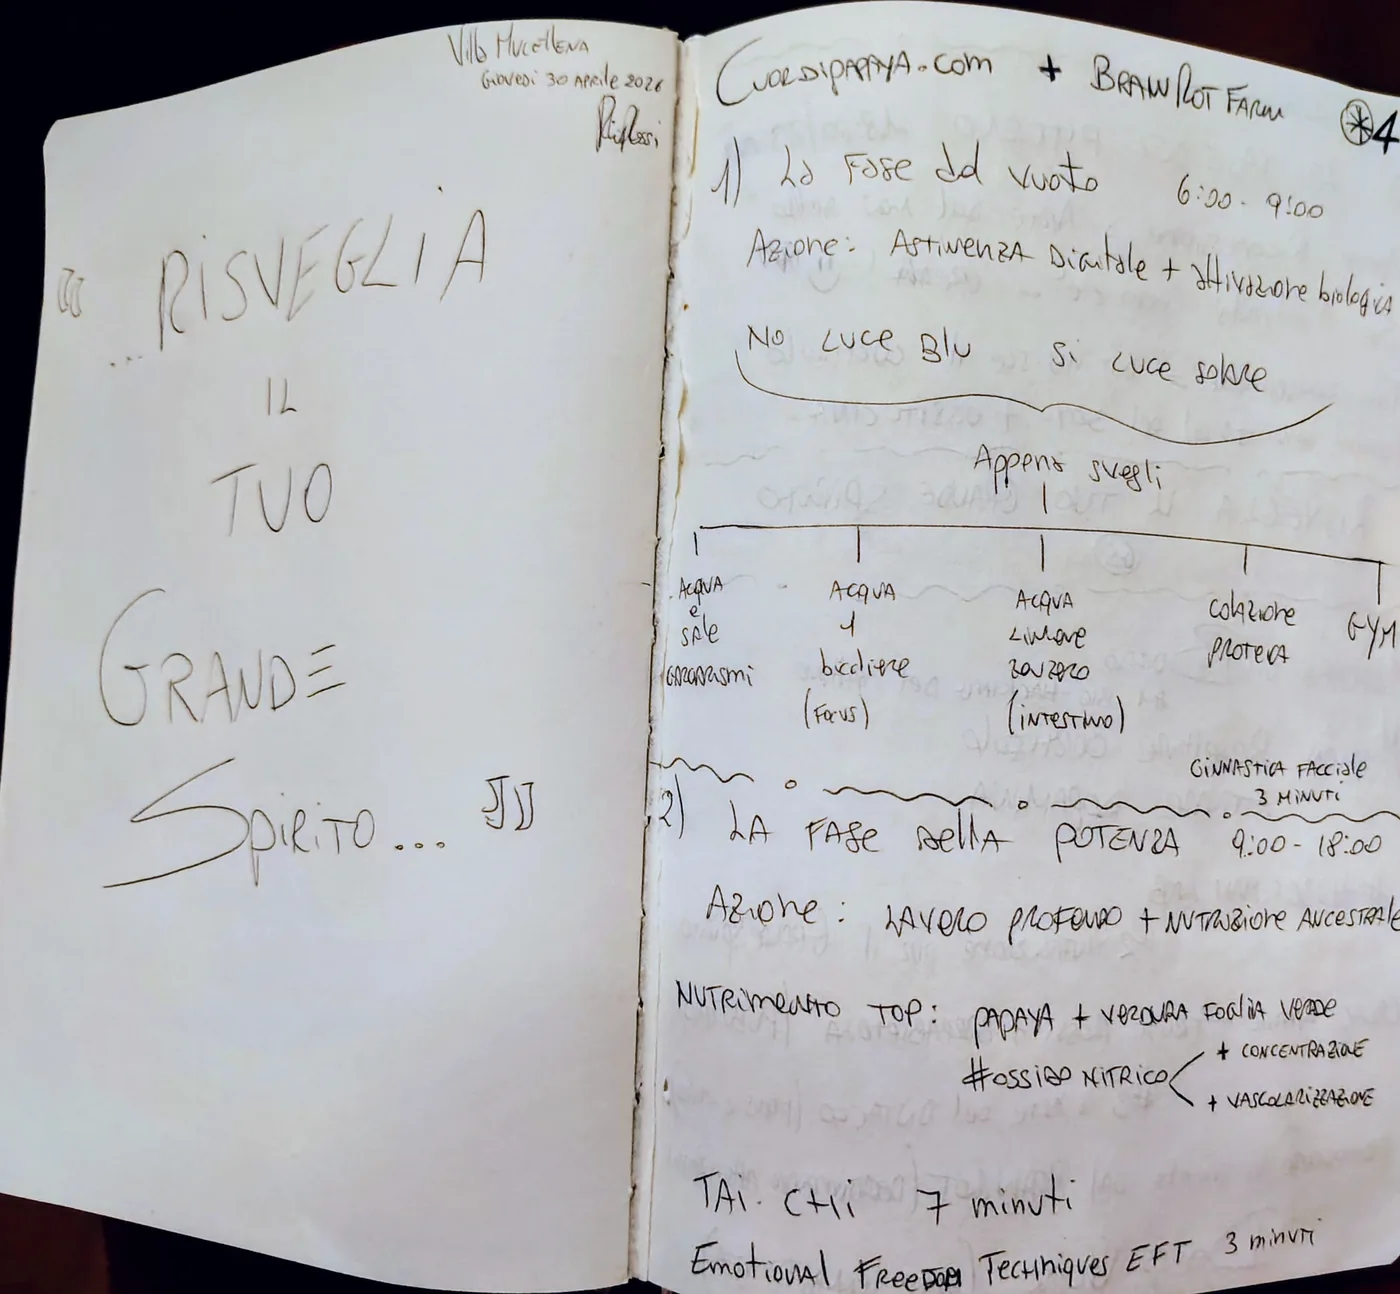 Villa Mucellena
Giovedì 30 Aprile 2026
RioRossi
“ ...RISVEGLIA
IL
TUO
GRANDE
SPIRITO... ”
CUORDIPAPAYA.COM + BRAINROT FARM
*4
1) La Fase del vuoto 6:00 - 9:00
Azione: Astinenza Digitale + attivazione biologica
No luce Blu Si luce solare
Appena svegli
Acqua e sale gargarismi
Acqua 1 bicchiere (Focus)
Acqua limone zenzero (intestino)
colazione proteica
GYM
GINNASTICA FACCIALE
3 MINUTI
2) LA FASE della POTENZA 9:00 - 18:00
Azione: LAVORO PROFONDO + NUTRIZIONE ANCESTRALE
NUTRIMENTO TOP: PAPAYA + VERDURA FOGLIA VERDE
#OSSIDO NITRICO
+ CONCENTRAZIONE
+ VASCOLARIZZAZIONE
TAI. CHI 7 minuti
Emotional Freedom Techniques EFT 3 minuti